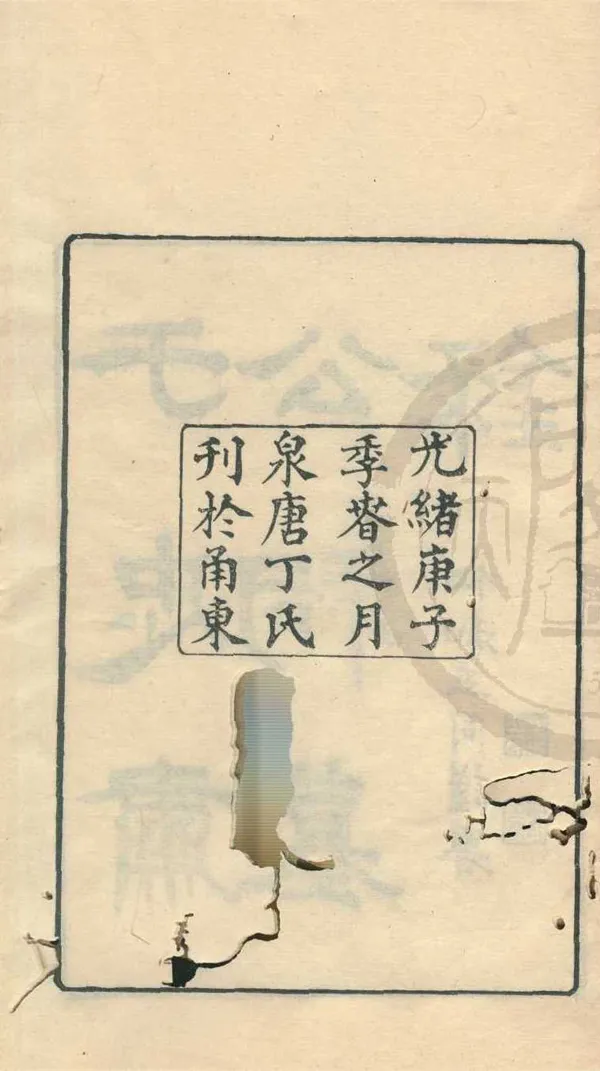 光緒庚子
季萅之月
泉唐丁氏
刊於甬東